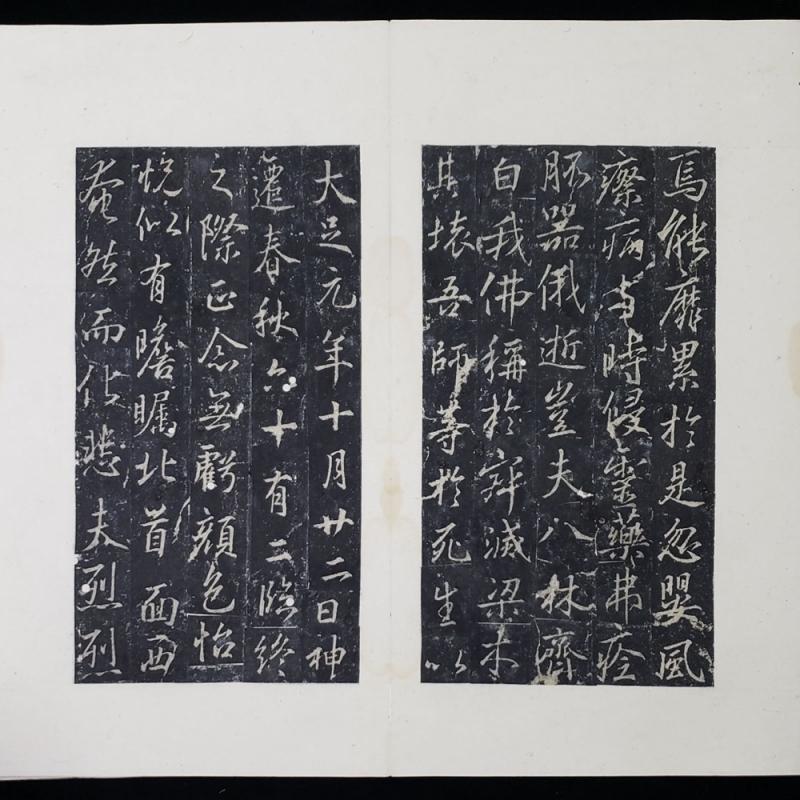 焉能靡累於是忽嬰風
瘵病与時侵藥弗痊
胚器俄逝豈夫八林齊
白我佛稱於寂滅梁木
其壞吾師等於死生以
大足元年十月廿二日神
遷春秋六十有二臨終
之際正念無虧顏色怡
悅似有瞻矚北首面西
奄然而化悲夫烈烈